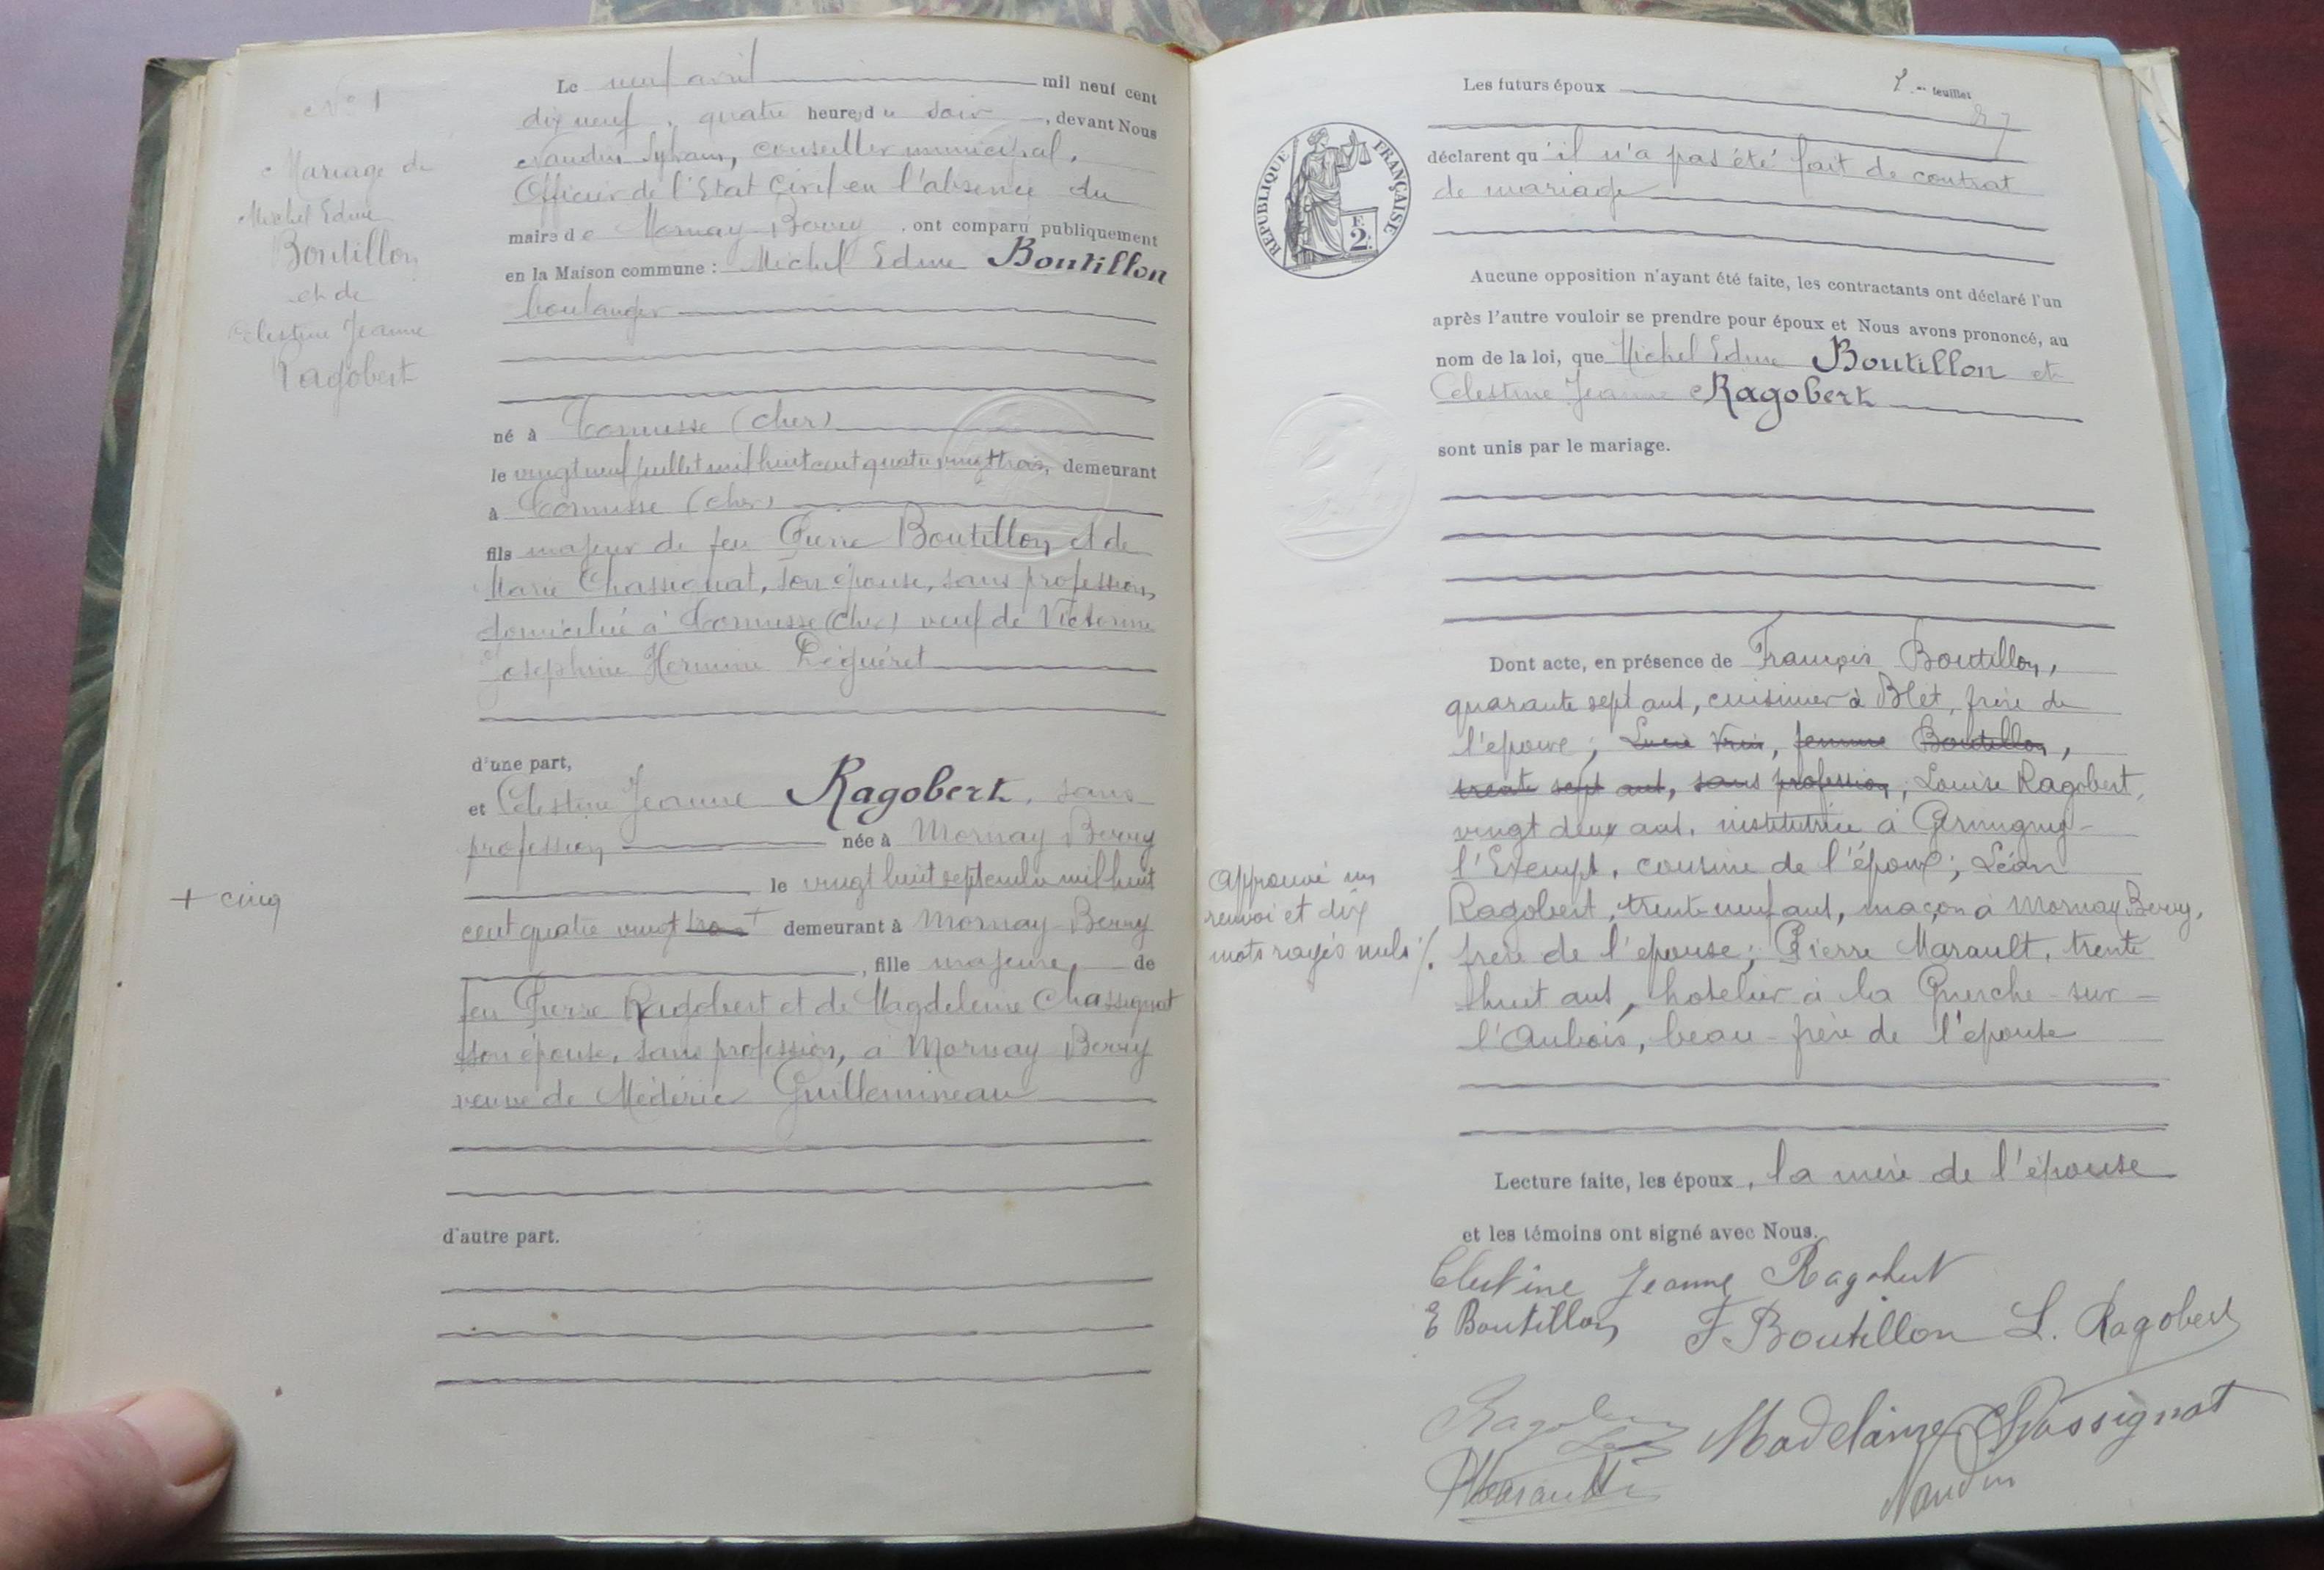 N° 1
Mariage de
Michel Edme
Boutillon
et de
Celestine Jeanne
Ragobert
+ cinq
Le neuf avril mil neuf cent
dix neuf, quatre heures du soir, devant Nous
Naudin Sylvain, conseiller municipal,
Officier de l'Etat Civil en l'absence du
maire de Mornay-Berry, ont comparu publiquement
en la Maison commune : Michel Edme Boutillon
boulanger
né à Cornusse (Cher)
le vingt neuf juillet mil huit cent quatre vingt trois, demeurant
à Cornusse (Cher)
fils majeur de feu Pierre Boutillon et de
Marie Chassignat, son épouse, sans profession,
domiciliée à Cornusse (Cher) veuf de Victorine
Josephine Hermine Déguéret
d'une part,
et Celestine Jeanne Ragobert, sans
profession née à Mornay Berry
le vingt huit septembre mil huit
cent quatre vingt + demeurant à Mornay-Berry
, fille majeure de
feu Pierre Ragobert et de Magdeleine Chassignat
son épouse, sans profession, à Mornay Berry
veuve de Médéric Guillemineau
d'autre part.
2.me feuillet
Les futurs époux
déclarent qu'il n'a pas été fait de contrat
de mariage
RÉPUBLIQUE FRANÇAISE
F. 2.
Aucune opposition n'ayant été faite, les contractants ont déclaré l'un
après l'autre vouloir se prendre pour époux et Nous avons prononcé, au
nom de la loi, que Michel Edme Boutillon et
Celestine Jeanne Ragobert
sont unis par le mariage.
Dont acte, en présence de François Boutillon,
quarante sept ans, cuisinier à Blet, frère de
l'époux ; Lucie, femme Boutillon,
trente sept ans, sans profession ; Louise Ragobert,
vingt deux ans, institutrice à Germigny-
l'Exempt, cousine de l'époux ; Léon
Ragobert, trente-neuf ans, maçon à Mornay Berry,
frère de l'épouse ; Pierre Marault, trente
huit ans, hotelier à la Guerche-sur-
l'Aubois, beau-frère de l'epouse
Approuvé un
renvoi et dix
mots rayés nuls ./.
Lecture faite, les époux, la mère de l'épouse
et les témoins ont signé avec Nous.
Celestine Jeanne Ragobert
E Boutillon F. Boutillon L. Ragobert
Ragobert Madelaine Chassignat
Marault Naudin